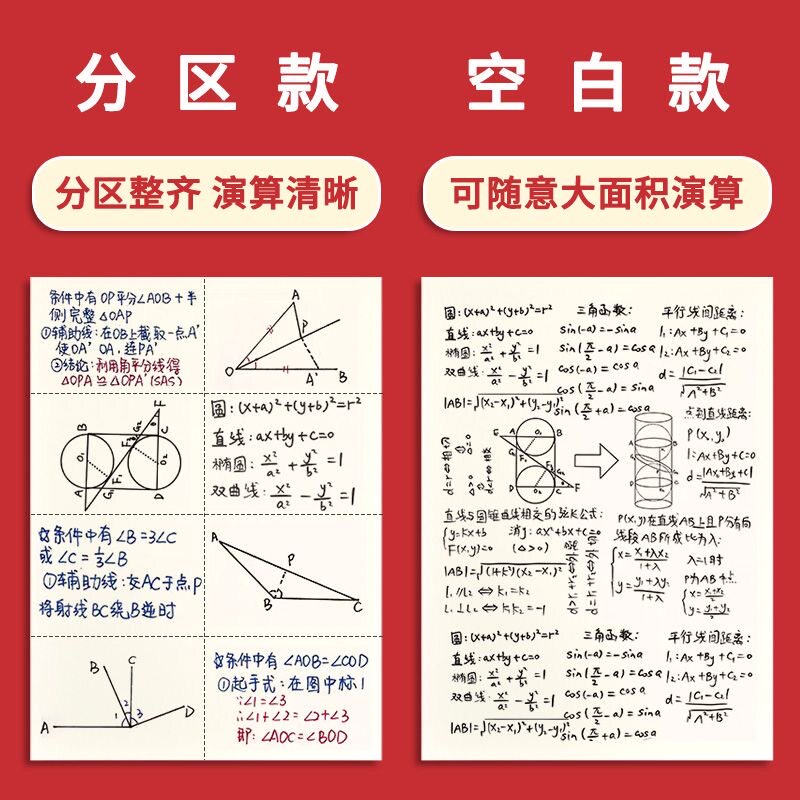 分区款
空白款
分区整齐 演算清晰
可随意大面积演算
条件中有OP平分∠AOB+半
侧完整△OAP
①辅助线:在OB上截取一点A'
使OA' OA,连PA'
②结论:利用角平分线得
△OPA≌△OPA'(SAS)
A
P
O
A'
B
B
G₂
F
C
O₁
F₁
O₂
A
G₁
D
圆:(x+a)²+(y+b)²=r²
直线:ax+by+c=0
椭圆:x²/a²+y²/b²=1
双曲线:x²/a²-y²/b²=1
条件中有∠B=3∠C
或∠C=1/3∠B
①辅助线:交AC于点P
将射线BC绕B逆时
A
P
B
C
B
C
D
A
1
2
3
条件中有∠AOB=∠COD
①起手式:在图中标1
∵∠1=∠3
∴∠1+∠2=∠2+∠3
即:∠AOC=∠BOD
圆:(x+a)²+(y+b)²=r²
直线:ax+by+c=0
椭圆:x²/a²+y²/b²=1
双曲线:x²/a²-y²/b²=1
|AB|=√(x₂-x₁)²+(y₂-y₁)²
三角函数:
sin(-a)=-sina
sin(π/2-a)=cosa
cos(-a)=cosa
cos(π/2-a)=sina
sin(π/2+a)=cosa
平行线间距离:
l₁:Ax+By+C₁=0
l₂:Ax+By+C₂=0
d=|C₁-C₂|/√A²+B²
点到直线距离:
P(x₀y₀)
l:Ax+By+C=0
d=|Ax₀+By₀+C|/√A²+B²
直线与圆锥曲线相交的弦长公式:
y=kx+b
F(x,y)=0
消y:ax²+bx+c=0
(△>0)
|AB|=√(1+k²)(x₂-x₁)²
l₁//l₂⇔k₁=k₂
l₁⊥l₂⇔k₁k₂=-1
P(x,y)在直线AB上且P分有向
线段AB所成比为λ:
x=x₁+λx₂/1+λ
y=y₁+λy₂/1+λ
λ=1时
P为AB中点
x=x₁+x₂/2
y=y₁+y₂/2
圆:(x+a)²+(y+b)²=r²
直线:ax+by+c=0
椭圆:x²/a²+y²/b²=1
双曲线:x²/a²-y²/b²=1
|AB|=√(x₂-x₁)²+(y₂-y₁)²
三角函数:
sin(-a)=-sina
sin(π/2-a)=cosa
cos(-a)=cosa
cos(π/2-a)=sina
sin(π/2+a)=cosa
平行线间距离:
l₁:Ax+By+C₁=0
l₂:Ax+By+C₂=0
d=|C₁-C₂|/√A²+B²